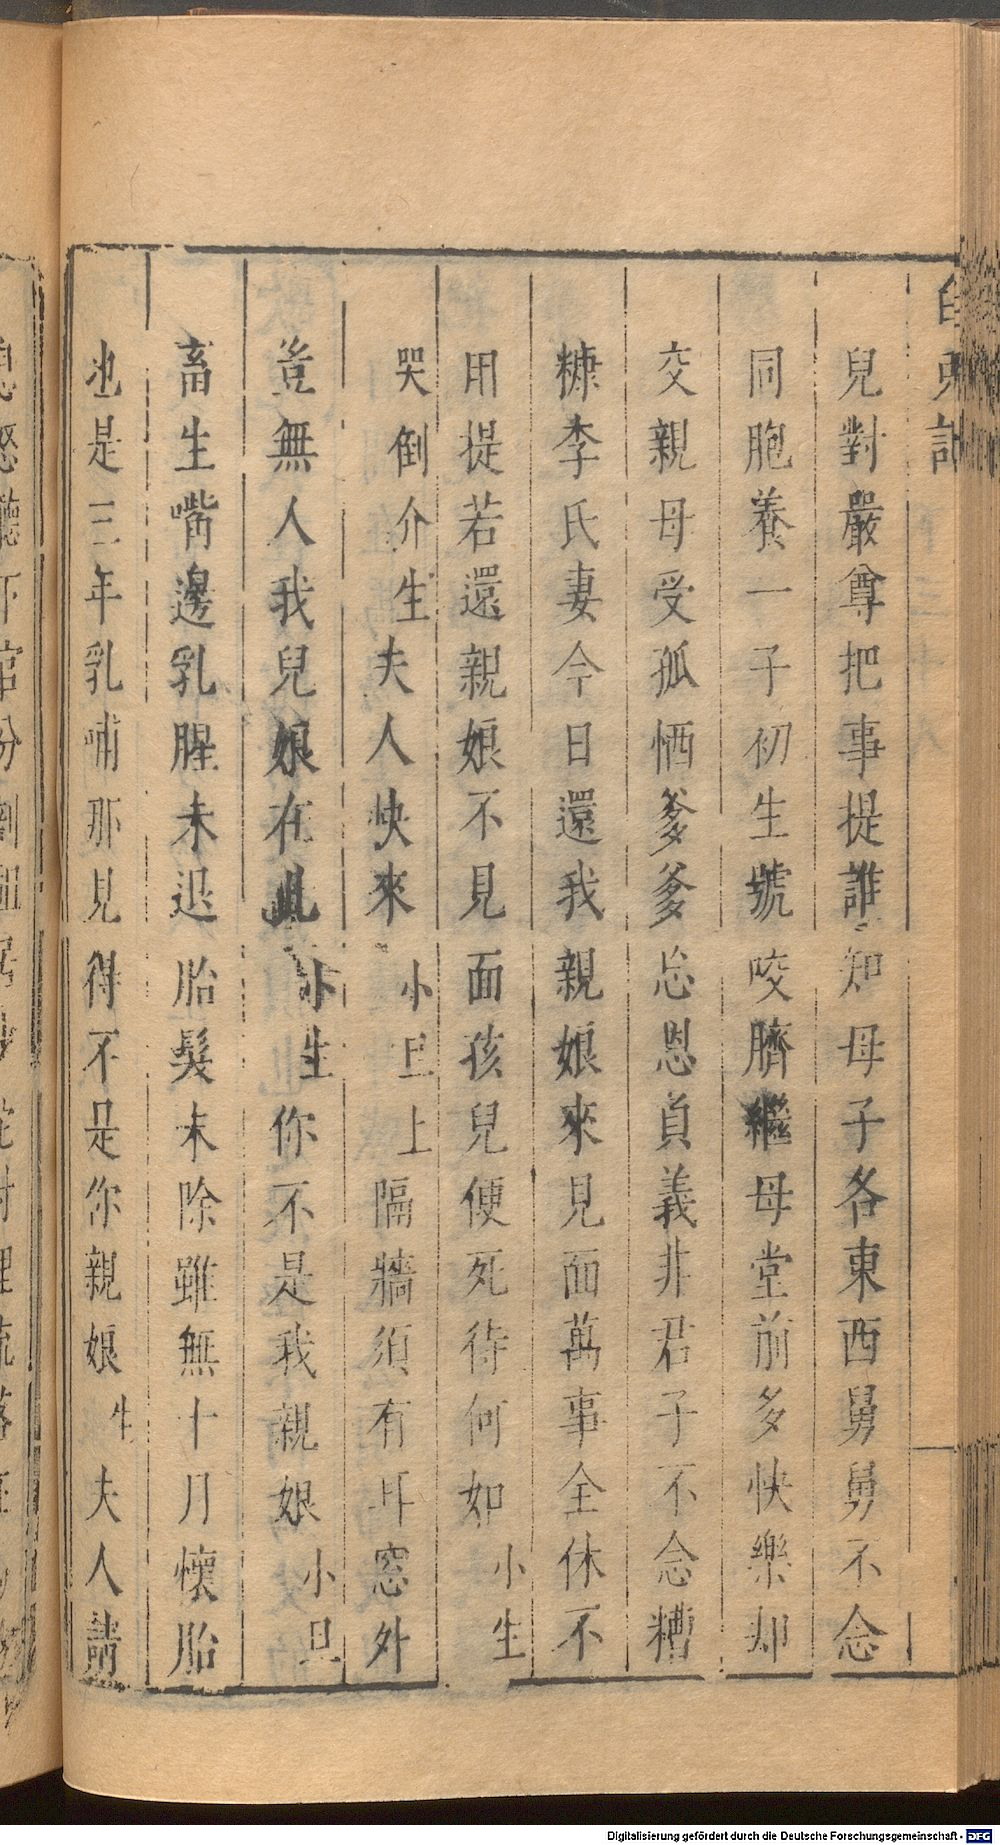 白兔記
兒對嚴尊把事提誰知母子各東西舅舅不念
同胞養一子初生號咬臍繼母堂前多快樂却
交親母受孤恓爹爹忘恩負義非君子不念糟
糠李氏妻今日還我親娘來見面萬事全休不
用提若還親娘不見面孩兒便死待何如小生
哭倒介生夫人快來小旦上隔牆須有耳窓外
豈無人我兒娘在此小生你不是我親娘小旦
畜生嘴邊乳腥未退胎髮未除雖無十月懷胎
也是三年乳哺那見得不是你親娘生夫人請
Digitalisierung gefördert durch die Deutsche Forschungsgemeinschaft - DFG